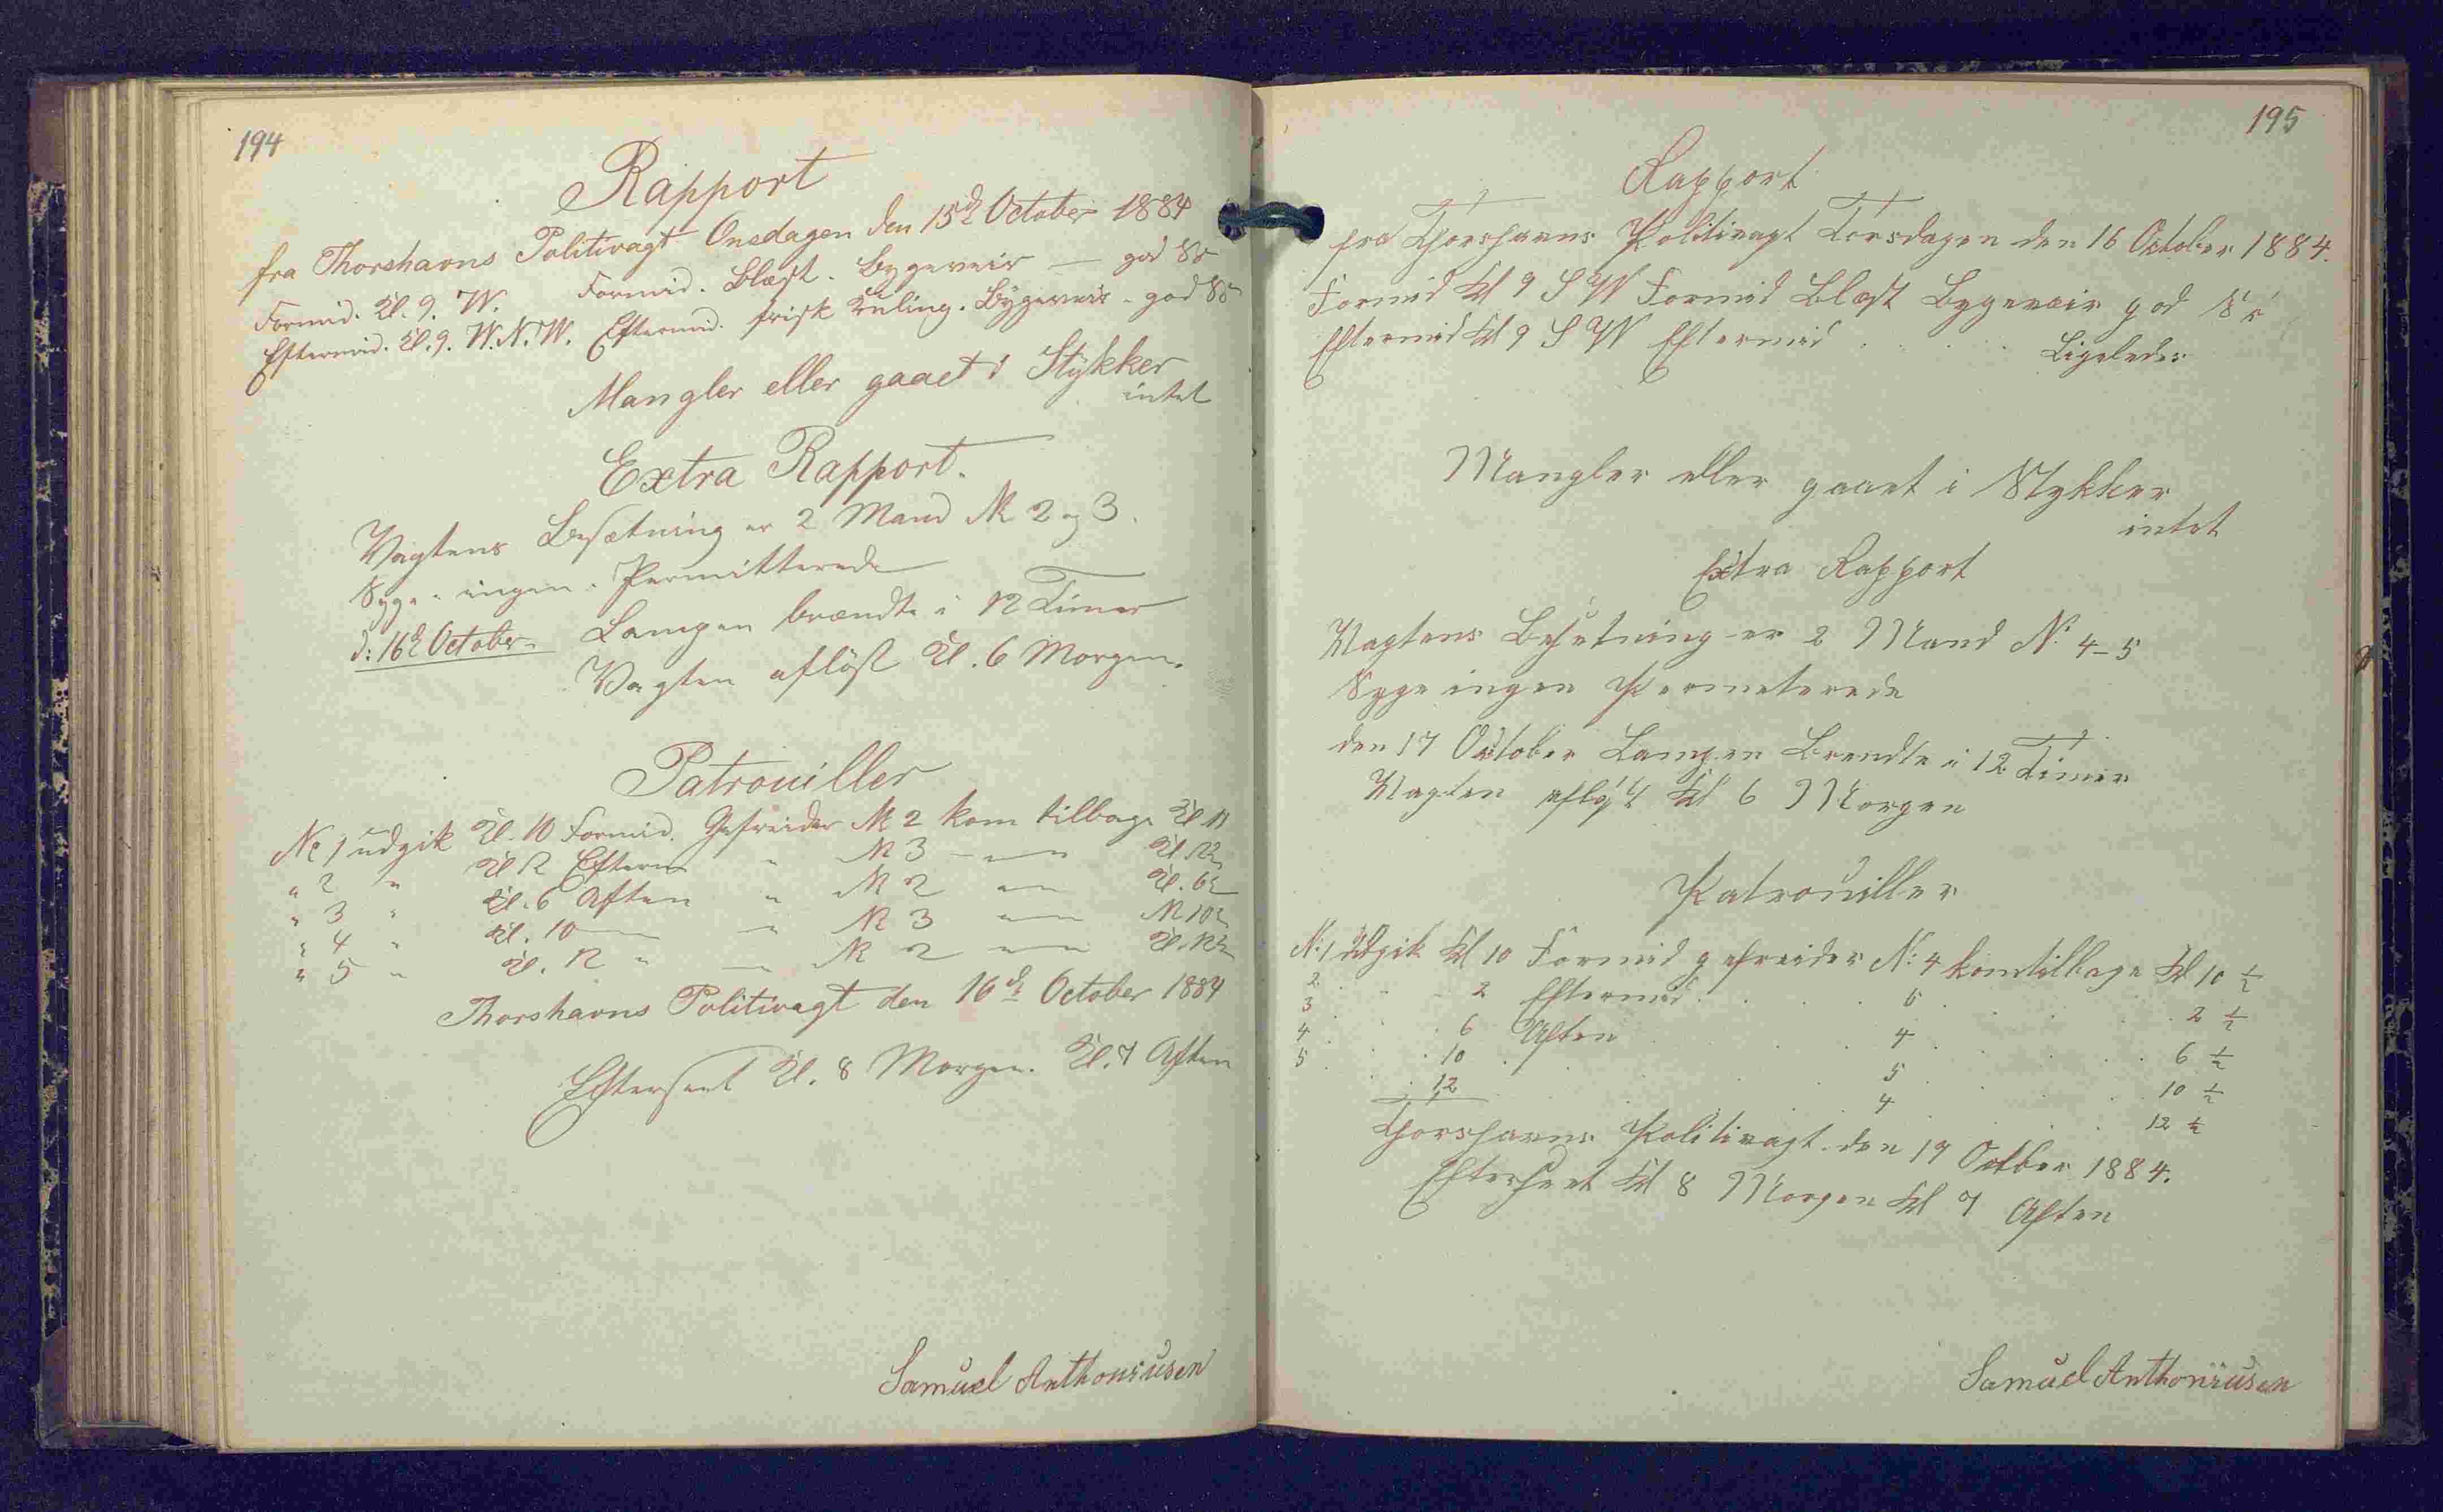 194
Rapport
fra Thorshavns Politivagt Onsdagen den 15de October 1884
Formid. Kl. 9. W. Formid. Blæst. Bygeveir — god Sö
Eftermid. Kl. 9. W.N.W. Eftermid. frisk Kuling. Bygeveir - god Sö
Mangler eller gaaet i Stykker
intet
Extra Rapport.
Vagtens Besætning er 2 Mand № 2 og 3.
Syge - ingen. Permitterede
d: 16de October. Lampen brændte i 12 Timer
Vagten aflöst Kl. 6 Morgen.
Patrouiller
№ 1 udgik Kl. 10 Formid. Gefreider № 2 kom tilbage Kl 11
" 2 " Kl 12 Efterm " № 3 — " — Kl. 12½
" 3 " Kl. 6 Aften " № 2 — " — Kl. 6½
" 4 " Kl. 10 — " № 3 — " — № 10½
" 5 " Kl. 12 " — № 2 — " — Kl. 12½
Thorshavns Politivagt den 16de October 1884
Efterseet Kl. 8 Morgen. Kl. 7 Aften
Samuel Anthoniusen
195
Rapport
fra Thorshavns Politivagt Torsdagen den 16 October 1884.
Formid Kl 9 S W Formid Blæst Bygeveir god Sö
Eftermid Kl 9 S W Eftermid . . . Ligeledes
Mangler eller gaaet i Stykker
intet
Extra Rapport
Vagtens Besetning er 2 Mand N: 4-5
Syge ingen Permeterede
den 17 October Lampen Brendte i 12 Timer
Vagten aflöst Kl 6 Morgen
Patrouiller
N: 1 udgik Kl 10 Formid gefreider N: 4 kom tilbage Kl 10 ½
2 . . 2 Eftermid . . 5 . . 2 ½
3 . . 6 Aften . . 4 . . 6 ½
4 . . 10 . . 5 . . 10 ½
5 . . 12 . . 4 . . 12 ½
Thorshavns Politivagt den 17 Octber 1884.
Efterseet Kl 8 Morgen Kl 7 Aften
Samuel Anthoniusen